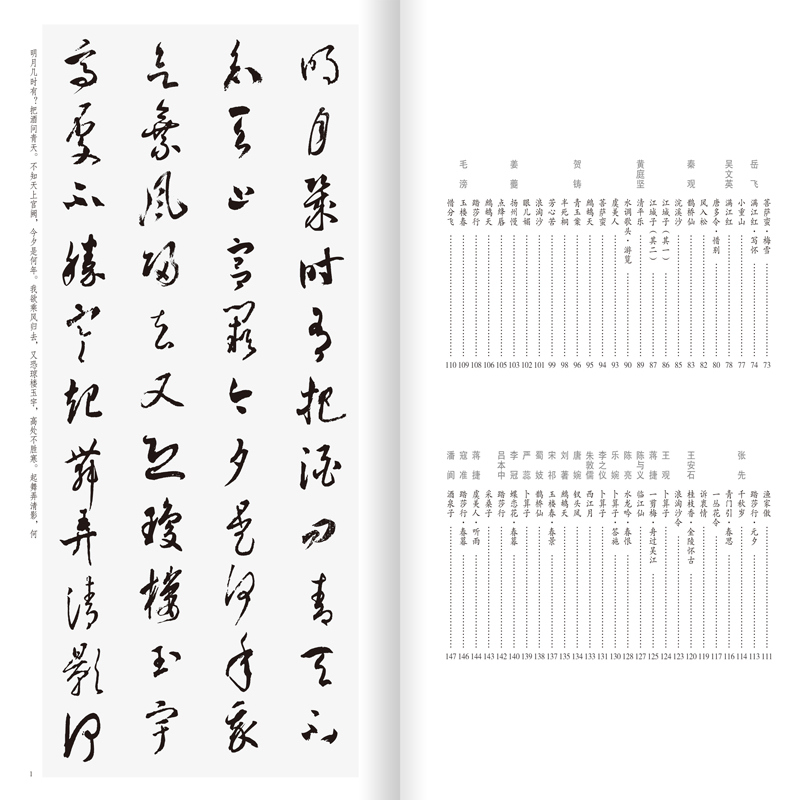 菩萨蛮·梅雪 73
岳飞 满江红·写怀 74
小重山 77
吴文英 满江红 78
唐多令·惜别 80
风入松 82
秦观 鹊桥仙 83
浣溪沙 85
江城子（其一） 86
江城子（其二） 87
黄庭坚 清平乐 89
水调歌头·游览 90
虞美人 93
菩萨蛮 94
鹧鸪天 95
贺铸 青玉案 96
半死桐 98
芳心苦 99
浪淘沙 101
眼儿媚 102
姜夔 扬州慢 103
点绛唇 105
鹧鸪天 106
踏莎行 108
毛滂 玉楼春 109
惜分飞 110
渔家傲 111
踏莎行·元夕 113
张先 千秋岁 114
青门引·春思 116
一丛花令 117
诉衷情 119
王安石 桂枝香·金陵怀古 120
浪淘沙令 123
王观 卜算子 124
蒋捷 一剪梅·舟过吴江 125
陈与义 临江仙 127
陈亮 水龙吟·春恨 128
乐婉 卜算子·答施 130
李之仪 卜算子 131
朱敦儒 西江月 133
唐婉 钗头凤 134
刘著 鹧鸪天 135
宋祁 玉楼春·春景 137
蜀妓 鹊桥仙 138
严蕊 卜算子 139
李冠 蝶恋花·春暮 140
吕本中 踏莎行 142
采桑子 143
蒋捷 虞美人·听雨 144
寇准 踏莎行·春暮 146
潘阆 酒泉子 147
明月几时有把酒问青天不
知天上宫阙今夕是何年我
欲乘风归去又恐琼楼玉宇
高处不胜寒起舞弄清影何
明月几时有？把酒问青天。不知天上宫阙，今夕是何年。我欲乘风归去，又恐琼楼玉宇，高处不胜寒。起舞弄清影，何
1